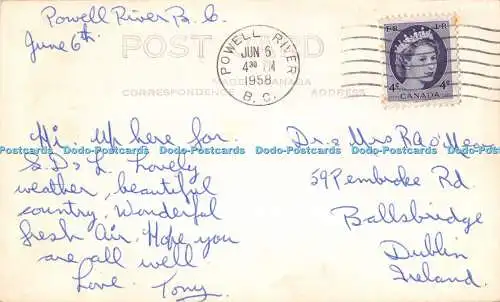 Powell River B. C
June 6th.
POST CARD
MADE IN CANADA
CORRESPONDENCE
ADDRESS
POWELL RIVER
JUN 6
4 30 PM
1958
B. C.
E II R
4¢ 4¢
CANADA
Hi up here for
Lovely
weather, beautiful
country. Wonderful
fresh air. Hope you
are all well
Love. Tony
Dr & Mrs
59 Pembroke Rd.
Ballsbridge
Dublin
Ireland.
Dodo-Postcards Dodo-Postcards Dodo-Postcards Dodo-Postcards Dodo-Postcards Dodo-Postcards